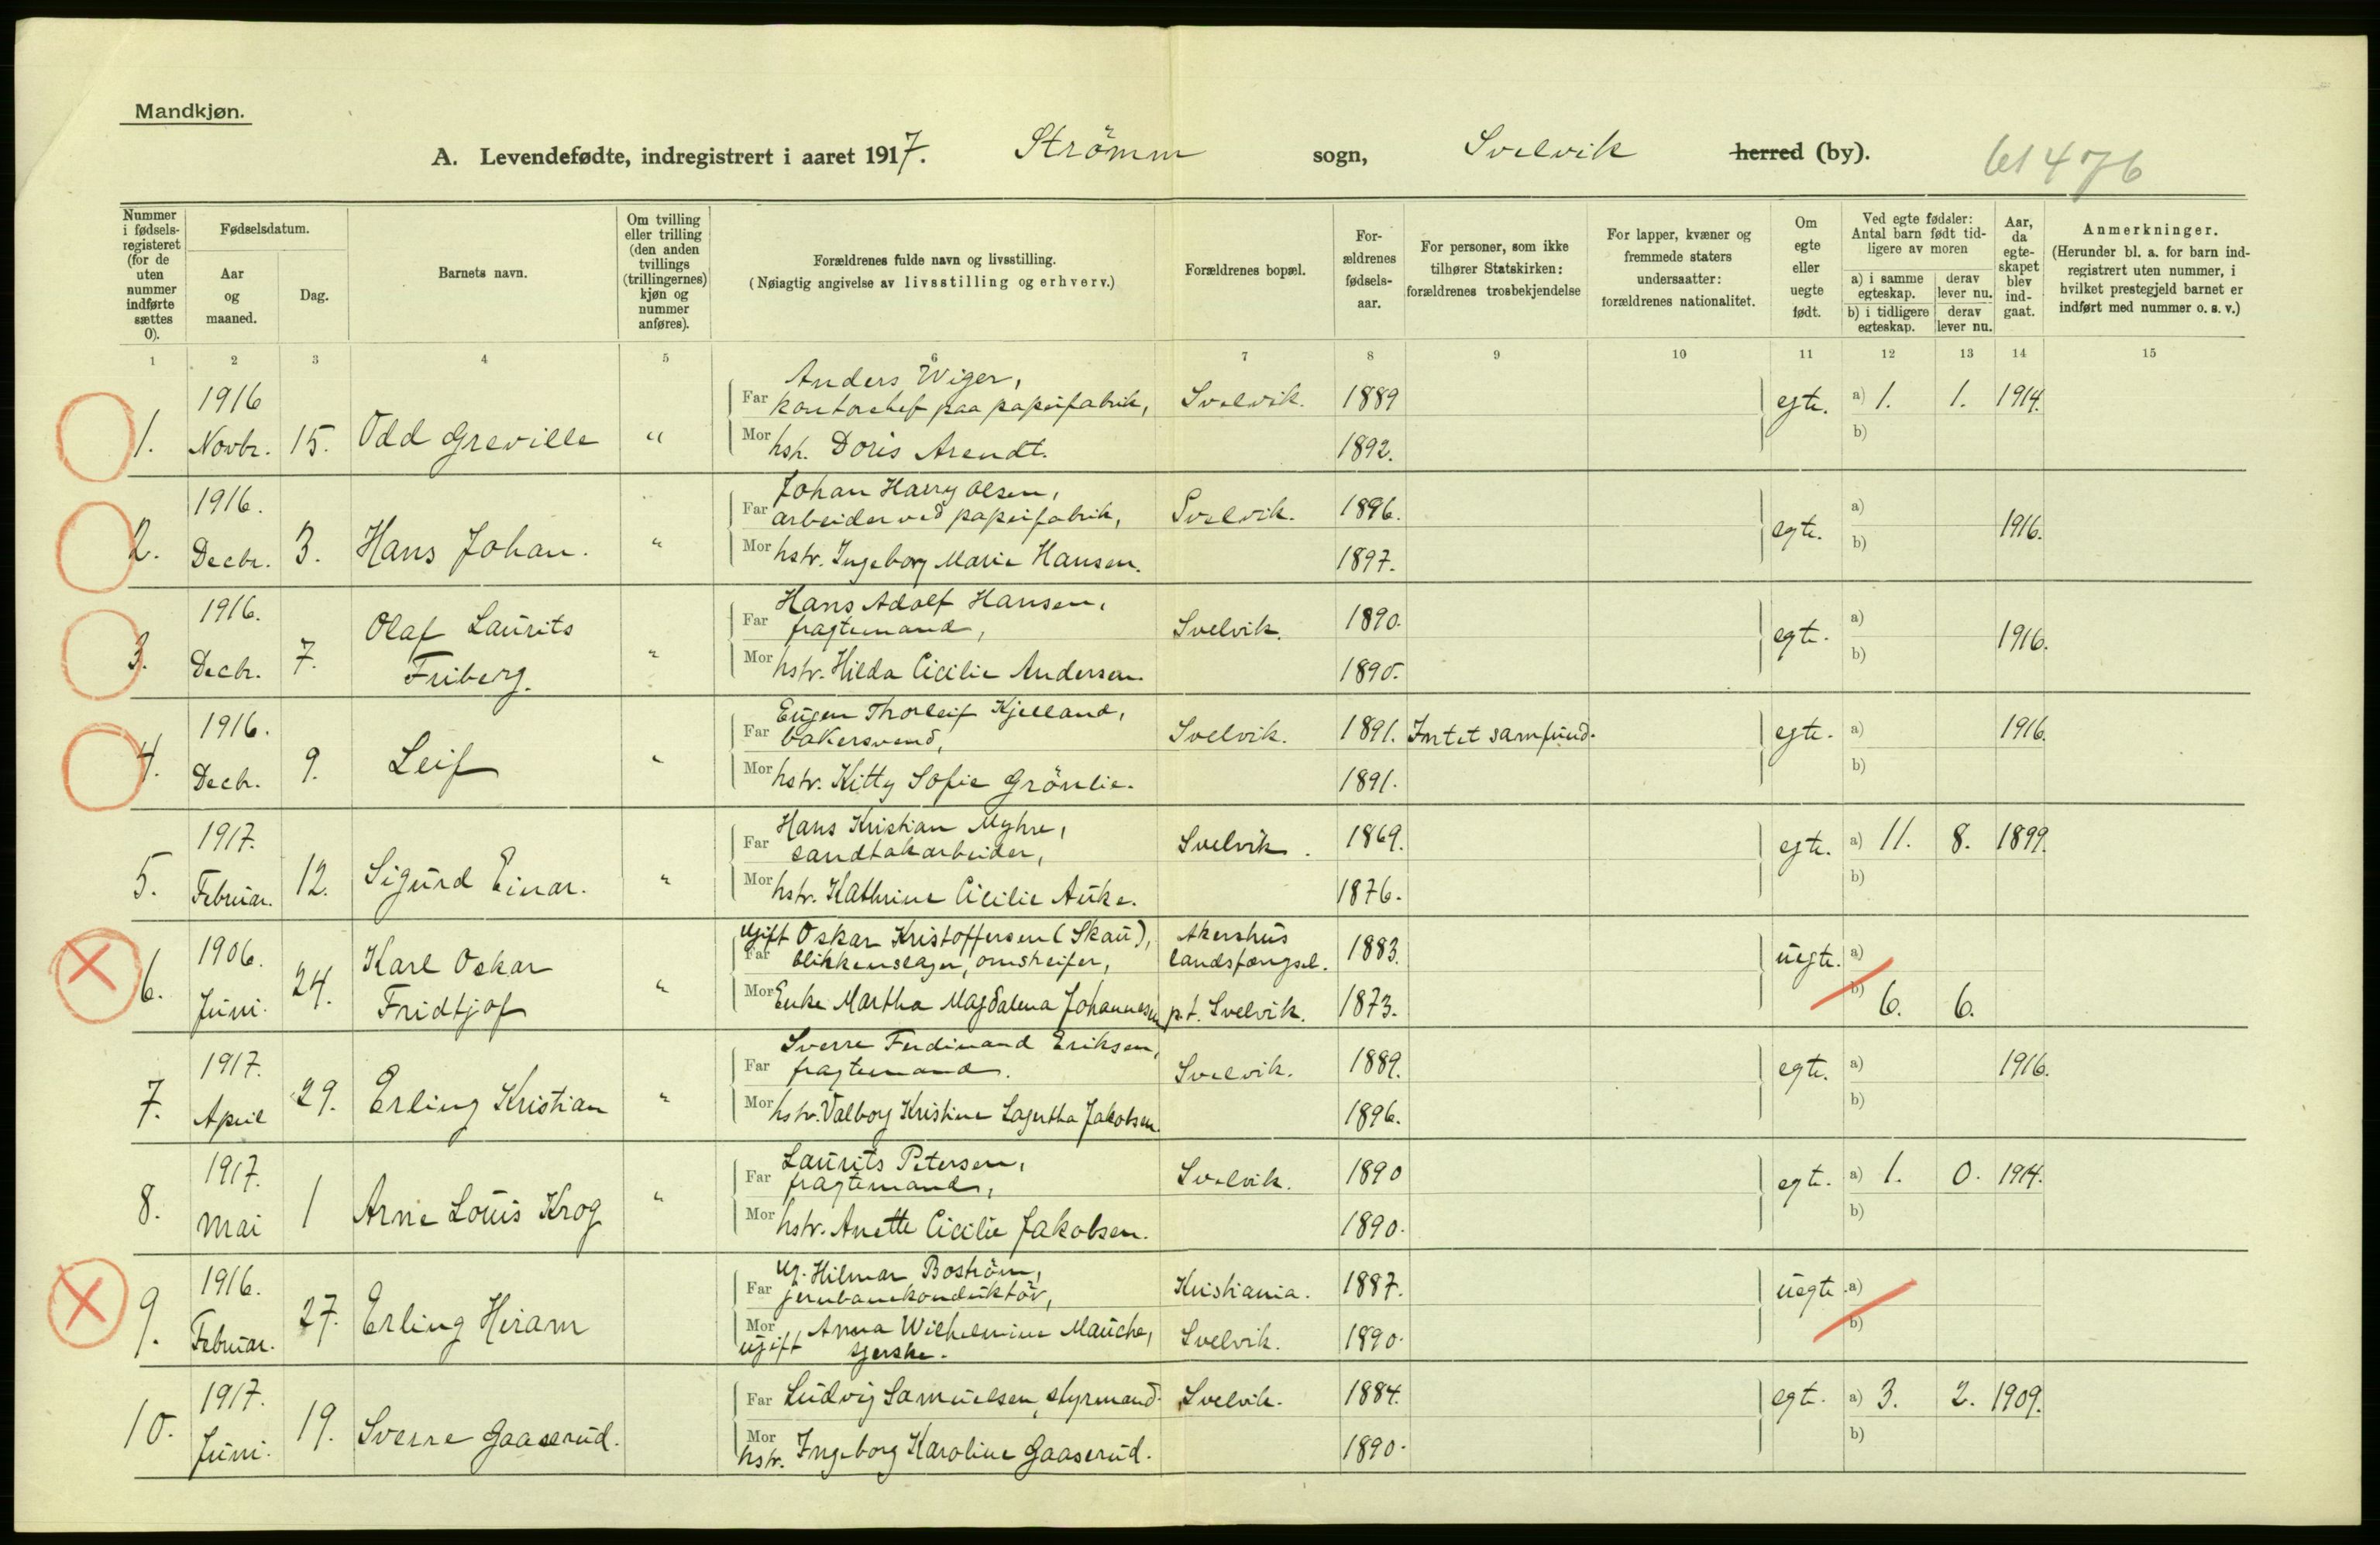 Mandkjøn.
A. Levendefødte, indregistrert i aaret 1917. Strömm sogn, Svelvik herred (by).
476
Nummer i fødsels-registeret (for de uten nummer indførte sættes 0).
Fødselsdatum.
Aar og maaned.
Dag.
Barnets navn.
Om tvilling eller trilling (den anden tvillings (trillingernes) kjøn og nummer anføres).
Forældrenes fulde navn og livsstilling.
(Nøiagtig angivelse av livsstilling og erhverv.)
Forældrenes bopæl.
For-ældrenes fødsels-aar.
For personer, som ikke tilhører Statskirken: forældrenes trosbekjendelse
For lapper, kvæner og fremmede staters undersaatter: forældrenes nationalitet.
Om egte eller uegte født.
Ved egte fødsler: Antal barn født tid-ligere av moren
a) i samme egteskap. derav lever nu.
b) i tidligere egteskap. derav lever nu.
Aar, da egte-skapet blev ind-gaat.
Anmerkninger.
(Herunder bl. a. for barn ind-registrert uten nummer, i hvilket prestegjeld barnet er indført med nummer o. s. v.)
1 2 3 4 5 6 7 8 9 10 11 12 13 14 15
1916 Anders Wiger,
Far kontorchef paa papirfabrik, Svelvik. 1889 egte. a) 1. 1. 1914.
1. Novbr. 15. Odd Greville " Mor hstr. Doris Arendt. 1892. b)
1916. Johan Harry Olsen,
Far arbeider ved papirfabrik, Svelvik. 1896. egte. a) 1916.
2. Decbr. 3. Hans Johan. " Mor hstr. Ingeborg Marie Hansen. 1897. b)
1916. Hans Adolf Hansen,
Olaf Laurits Far fragtemand, Svelvik. 1890. egte. a) 1916.
3. Decbr. 7. Friberg. " Mor hstr. Hilda Cicilie Andersen. 1890. b)
1916. Eugen Thorleif Kjelland,
Far bakersvend, Svelvik. 1891. Intet samfund. egte. a) 1916.
4. Decbr. 9. Leif " Mor hstr. Kitty Sofie Grönlie. 1891. b)
1917. Hans Kristian Myhre,
Far sandtakarbeider, Svelvik. 1869. egte. a) 11. 8. 1899.
5. Februar. 12. Sigurd Einar. " Mor hstr. Kathrine Cicilie Auke. 1876. b)
1906. ugift Oskar Kristoffersen (Skau), Akershus
Karl Oskar Far blikkenslager, omstreifer, landsfængsel. 1883. uegte. a)
6. Juni. 24. Fridtjof " Mor Enke Martha Magdalena Johannesen p.t. Svelvik. 1873. b) 6. 6.
1917. Sverre Ferdinand Eriksen,
Far fragtemand. Svelvik. 1889. egte. a) 1916.
7. April 29. Erling Kristian " Mor hstr. Valborg Kristine Lagertha Jakobsen. 1896. b)
1917. Laurits Petersen,
Far fragtemand, Svelvik. 1890 egte. a) 1. 0. 1914.
8. Mai 1 Arne Louis Krog " Mor hstr. Anette Cicilie Jakobsen. 1890. b)
1916. Ug. Hilmar Boström,
Far jernbanekonduktör, Kristiania. 1887. uegte. a)
9. Februar. 27. Erling Hiram Mor Anna Wilhelmine Mauche, Svelvik. 1890. b)
ugift syerske.
1917. Far Ludvig Samuelsen, styrmand. Svelvik. 1884. egte. a) 3. 2. 1909.
10. Juni. 19. Sverre Gaaserud. Mor hstr. Ingeborg Karoline Gaaserud. 1890. b)